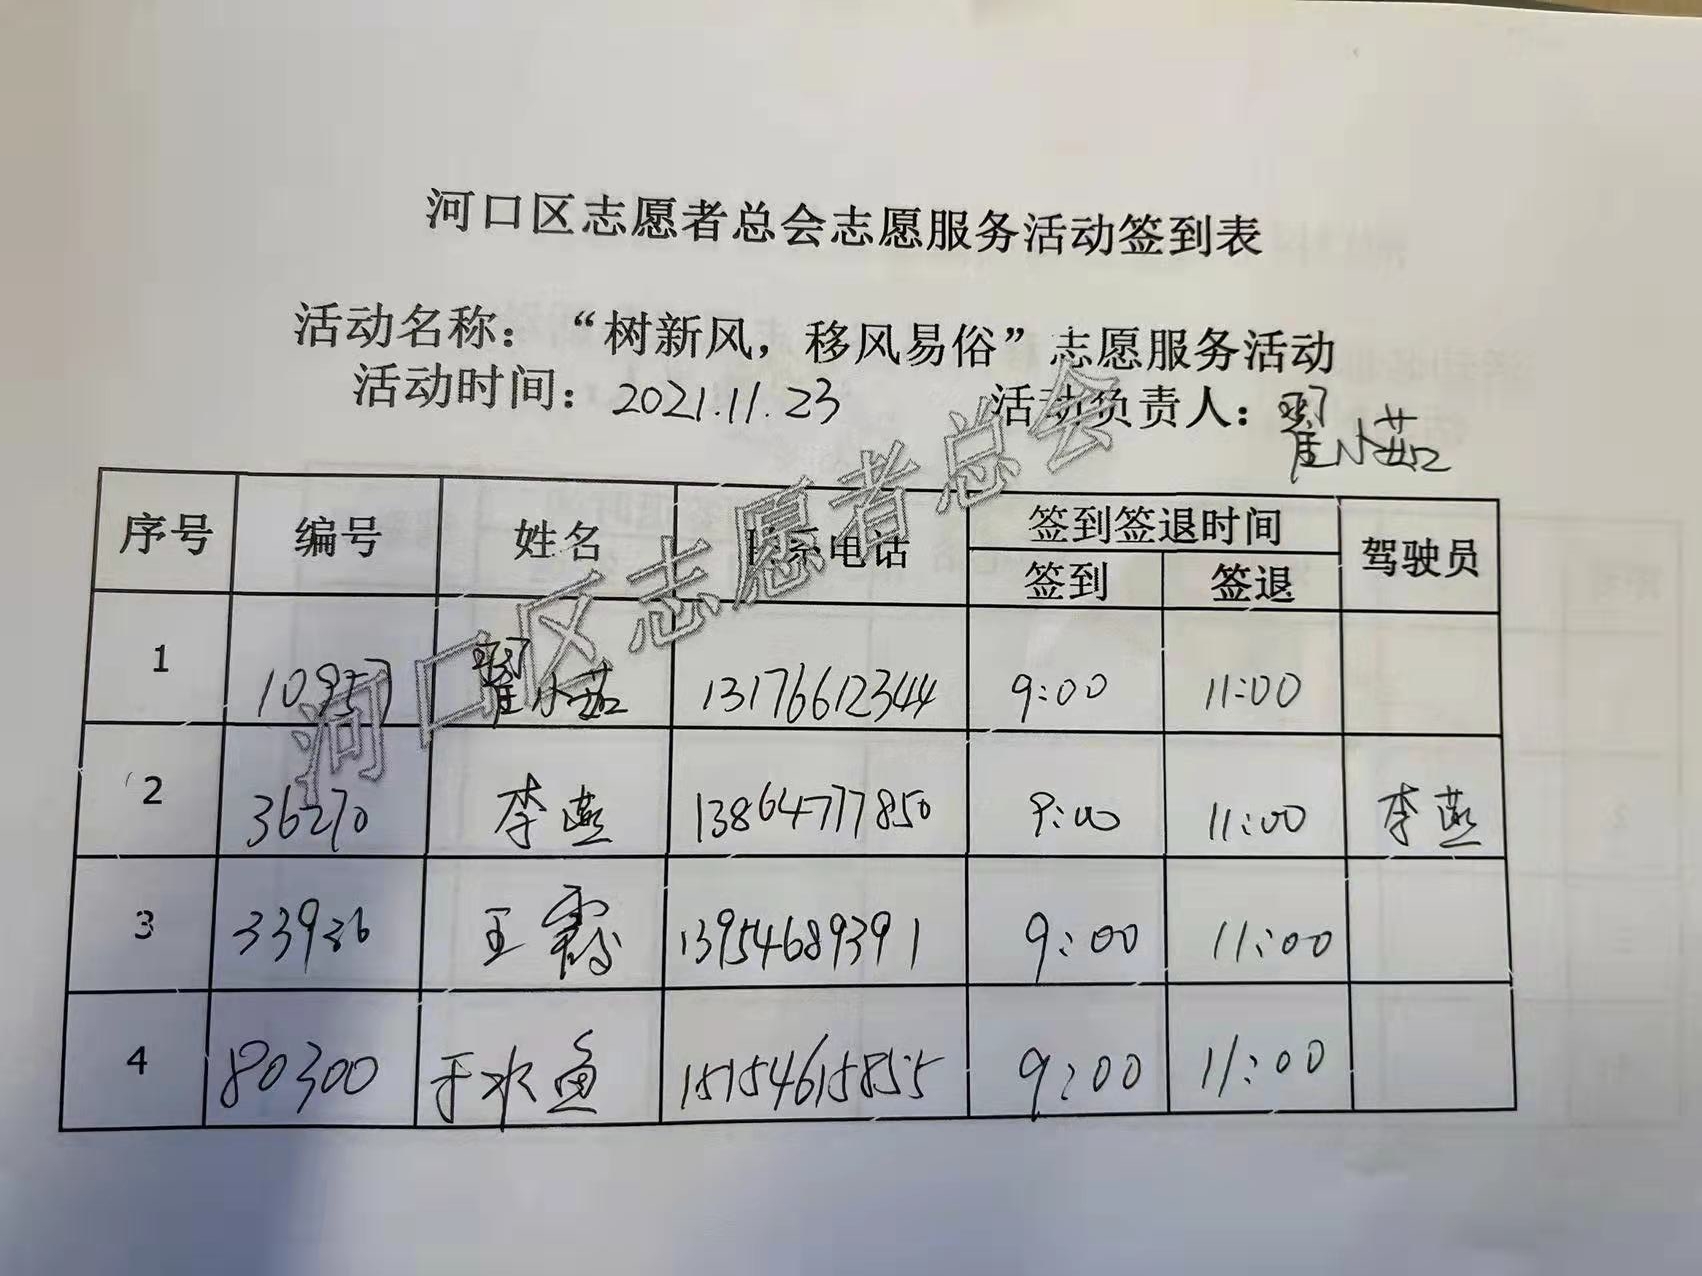 河口区志愿者总会志愿服务活动签到表
活动名称：“树新风，移风易俗”志愿服务活动
活动时间：2021.11.23 活动负责人：翟小茹
序号 编号 姓名 联系电话 签到签退时间 驾驶员
签到 签退
1 10957 翟小茹 13176612344 9:00 11:00
2 36270 李燕 13864777850 9:00 11:00 李燕
3 王霞 13954689391 9:00 11:00
4 80300 于水鱼 15154615855 9:00 11:00
河口区志愿者总会